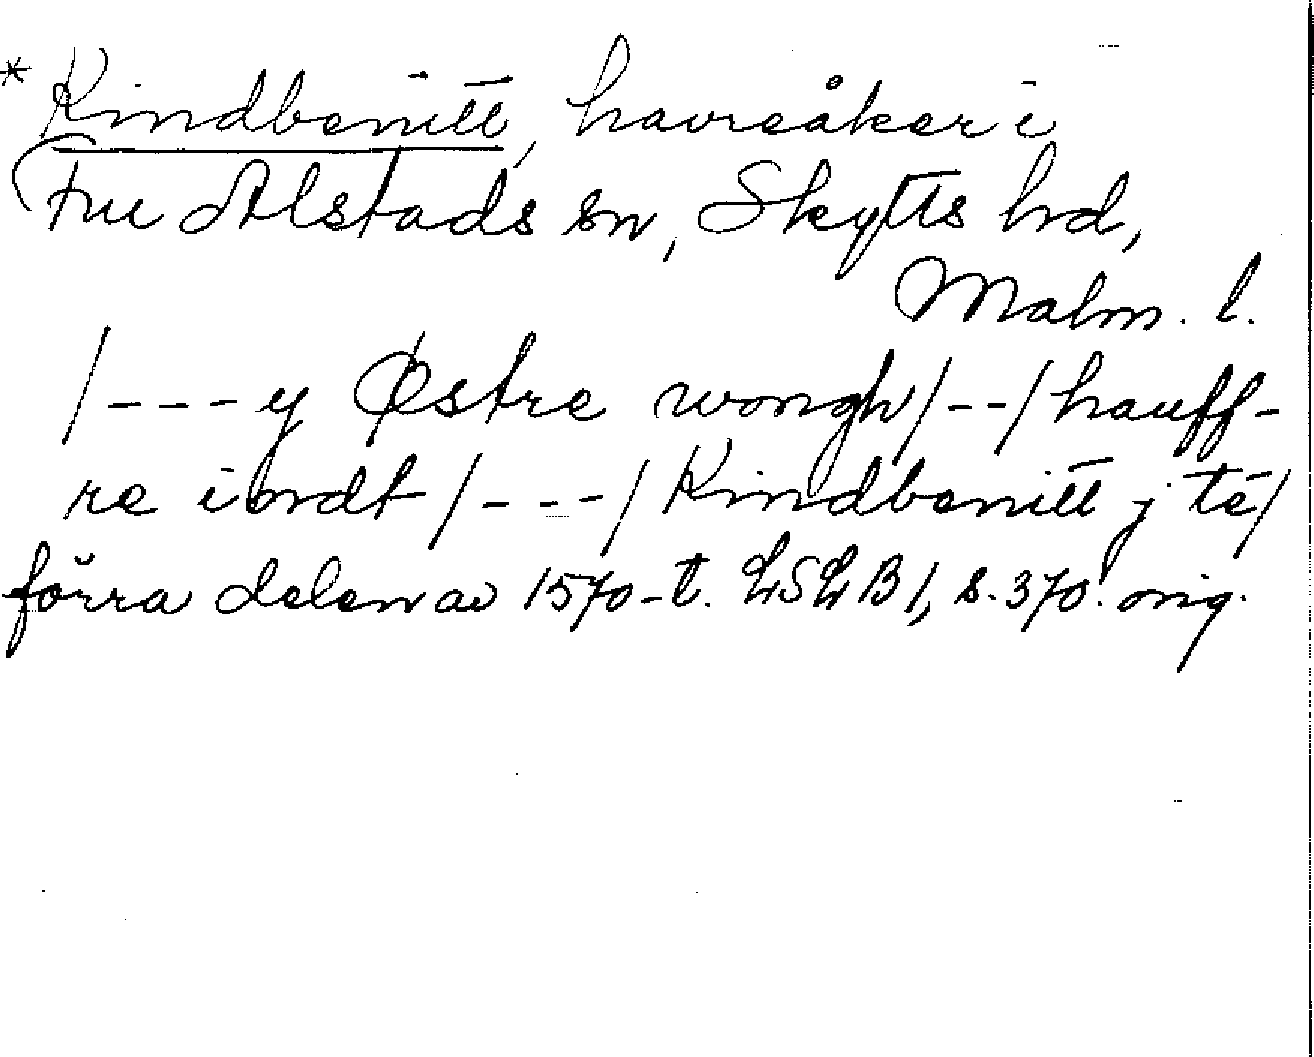 * Kindbenitt, havreåker i
Fru Alstads sn, Skytts hd,
Malm. l.
/---y Østre wongh/--/hauff-
re iordt/---/Kindbenitt j te/
förra delen av 1570-t. LSLB1, s. 370. orig.